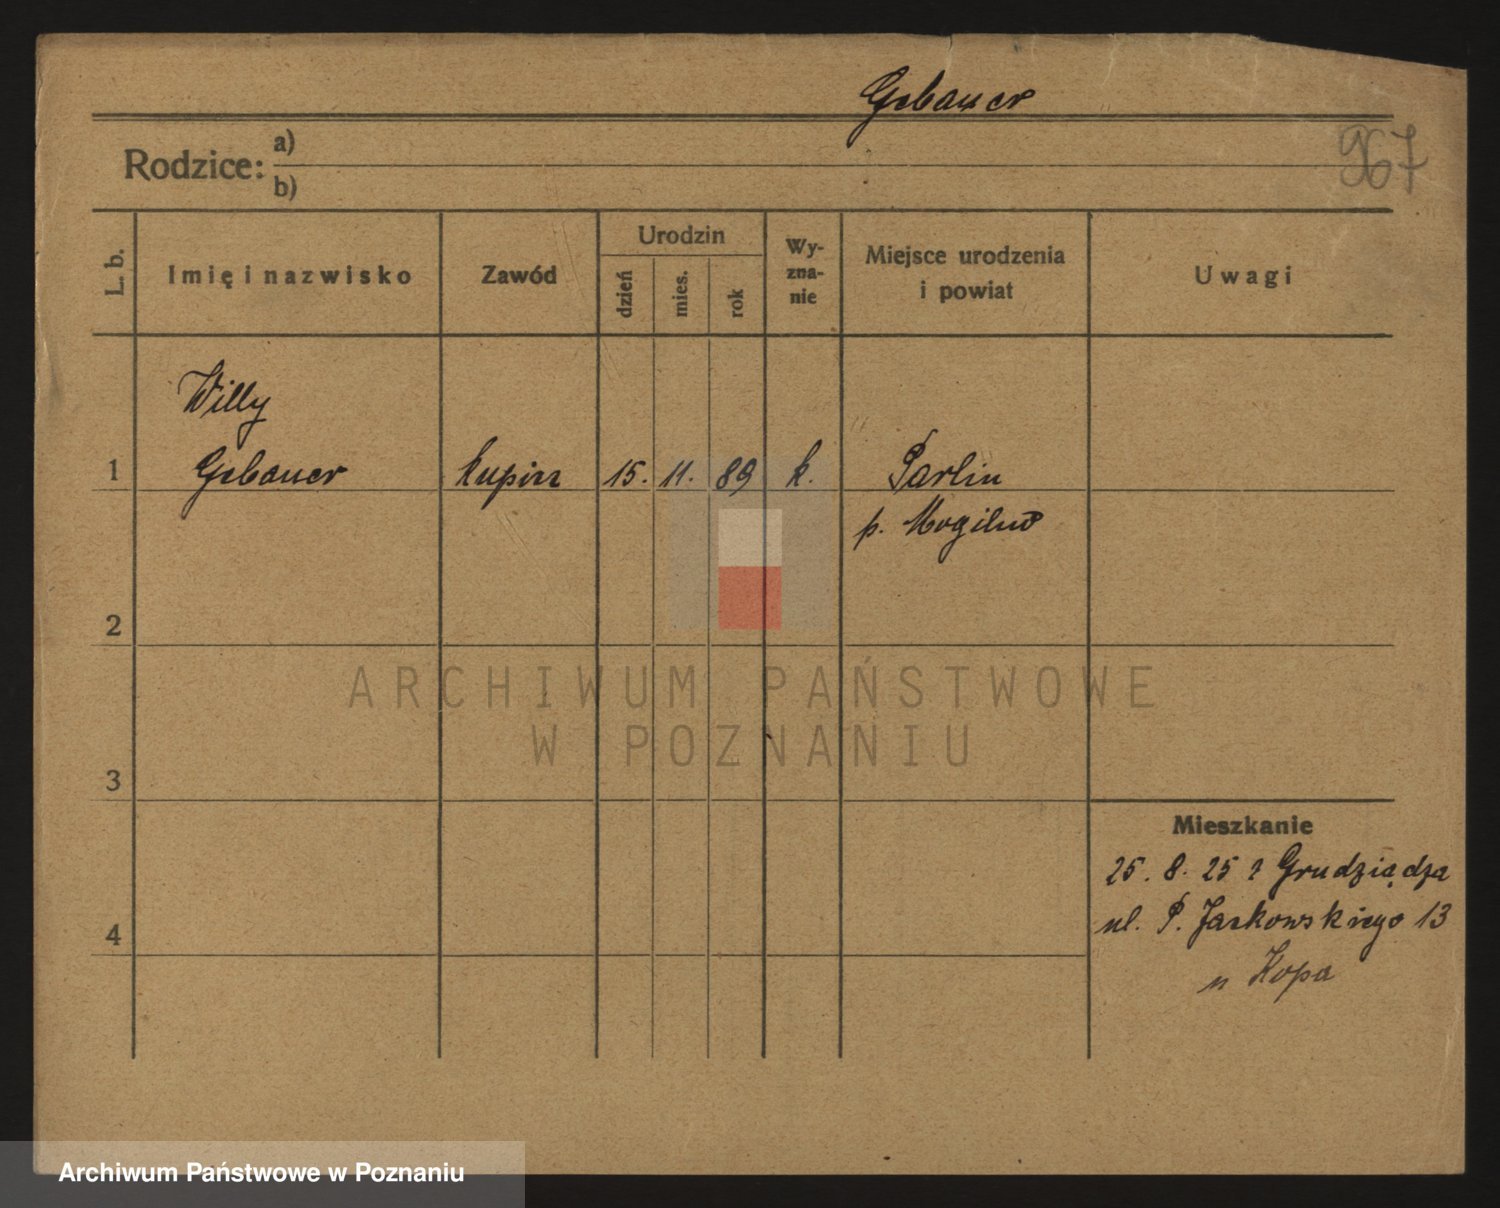 Gebauer
967
Rodzice: a)
b)
L. b.
Imię i nazwisko
Zawód
Urodzin
dzień
mies.
rok
Wy-
zna-
nie
Miejsce urodzenia
i powiat
Uwagi
Willy
1 Gebauer kupiec 15. 11. 89 k. Parlin
p. Mogilno
2
ARCHIWUM PAŃSTWOWE
W POZNANIU
3
Mieszkanie
25. 8. 25 z Grudziądza
ul. P. Jackowskiego 13
4
u Kopa
Archiwum Państwowe w Poznaniu